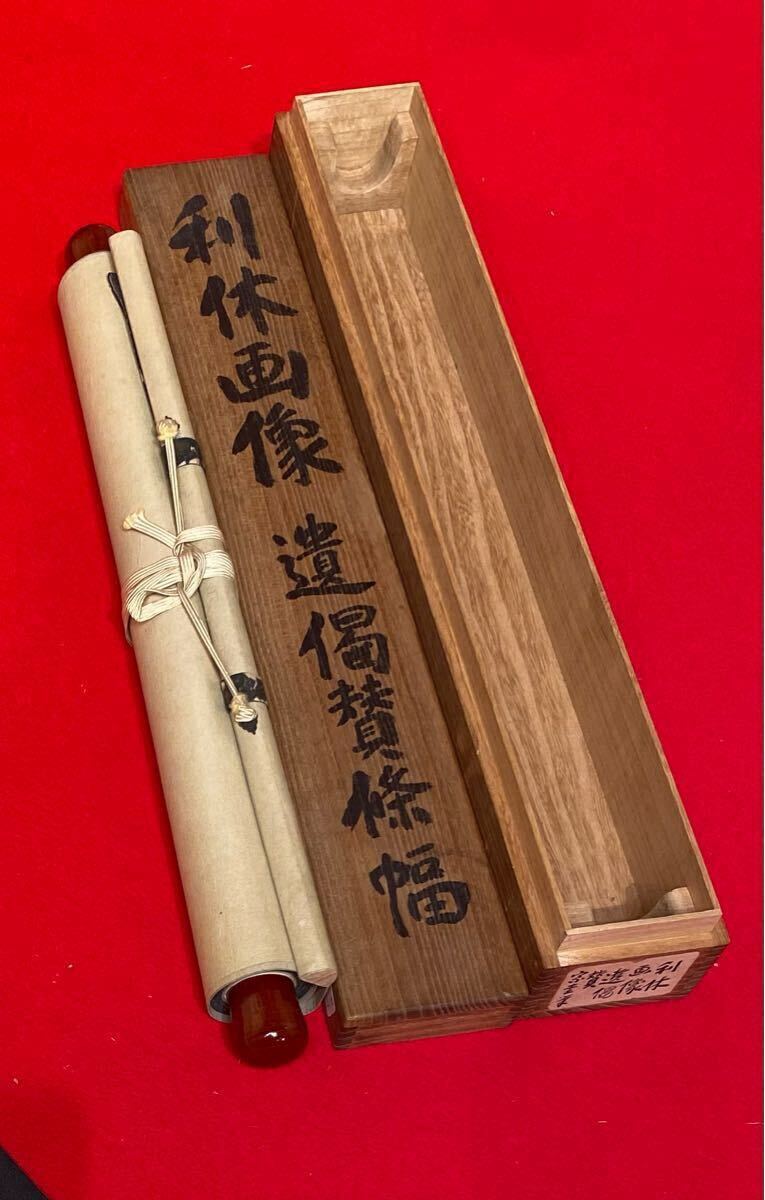 利休画像 遺偈賛條幅
利休
画像
遺偈
賛